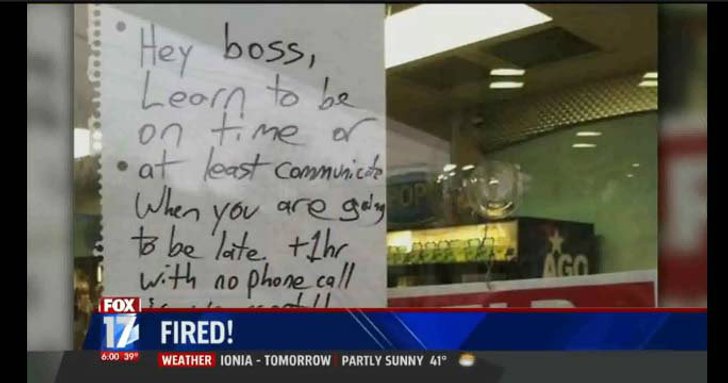 Hey boss,
Learn to be
on time or
at least communicate
When you are going
to be late. +1hr
with no phone call
AGO
FOX
17
FIRED!
6:00 39°
WEATHER IONIA - TOMORROW PARTLY SUNNY 41°